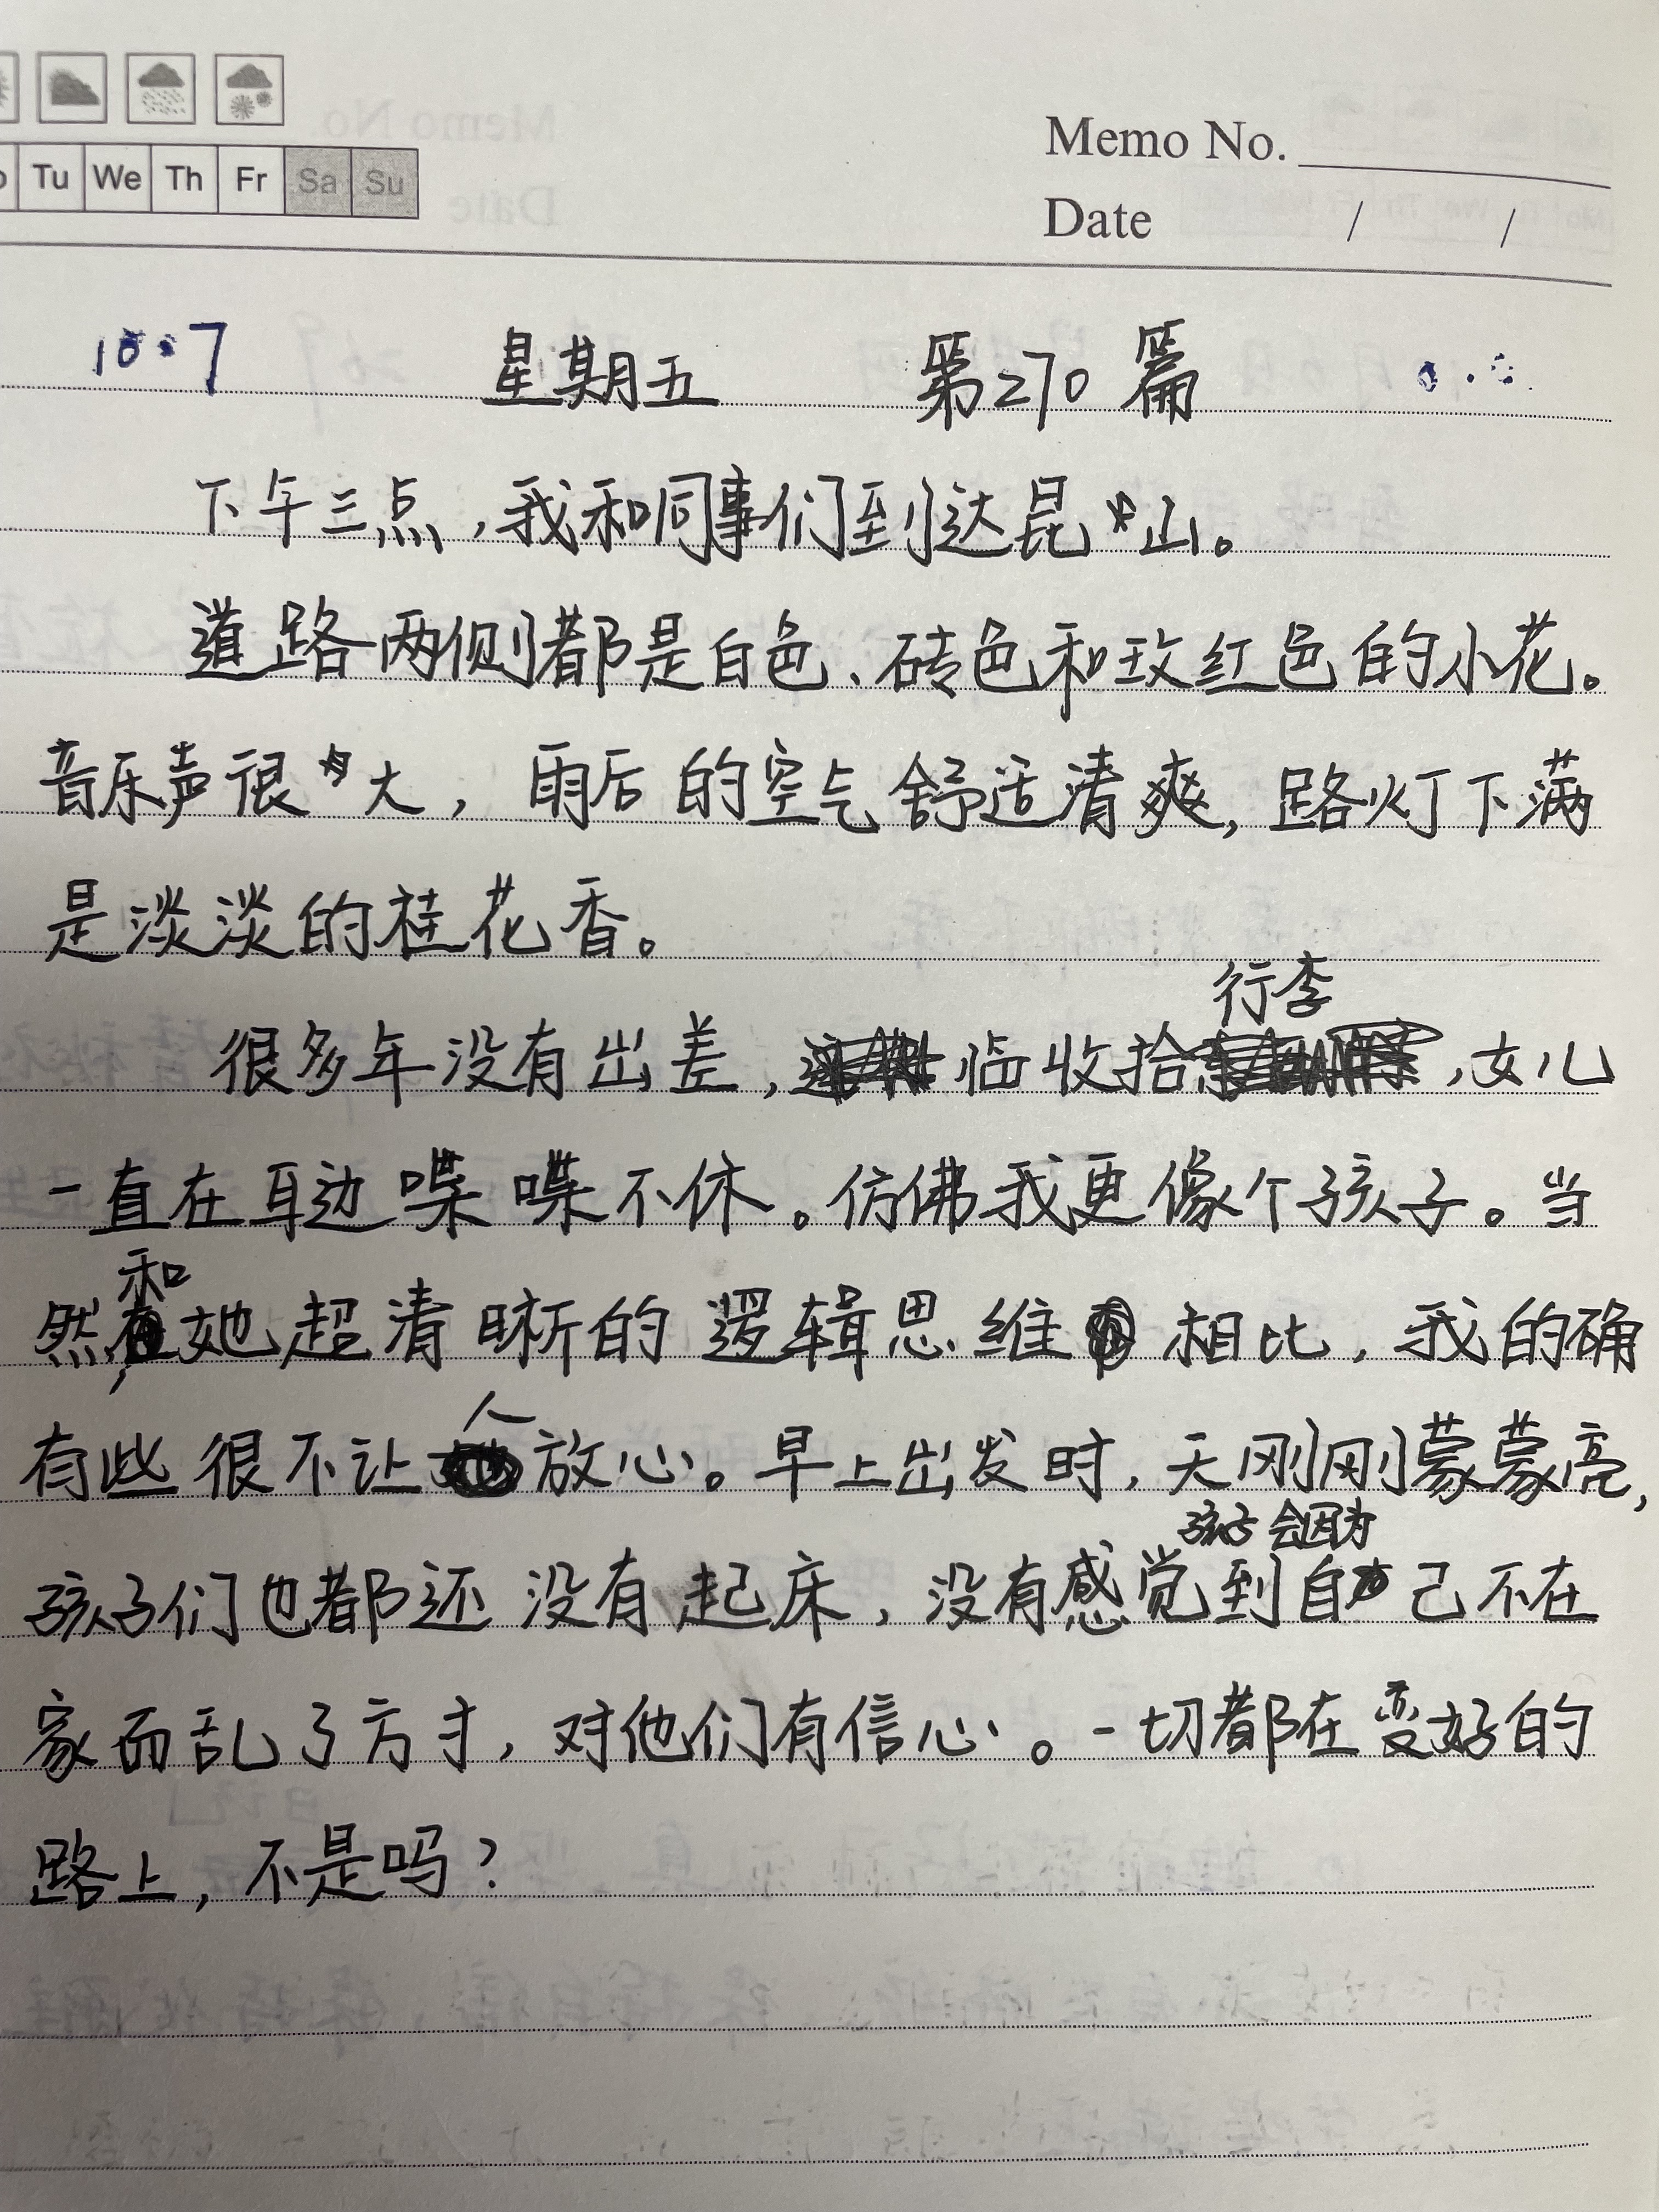 Tu We Th Fr Sa Su
Memo No.
Date / /
10.7 星期五 第270篇
下午三点，我和同事们到达昆山。
道路两侧都是白色、砖色和玫红色的小花。
音乐声很大，雨后的空气舒适清爽，路灯下满
是淡淡的桂花香。
行李
很多年没有出差，临收拾，女儿
一直在耳边喋喋不休。仿佛我更像个孩子。当
和
然，她超清晰的逻辑思维相比，我的确
人
有些很不让放心。早上出发时，天刚刚蒙蒙亮，
孩子会因为
孩子们也都还没有起床，没有感觉到自己不在
家而乱了方寸，对他们有信心。一切都在变好的
路上，不是吗？